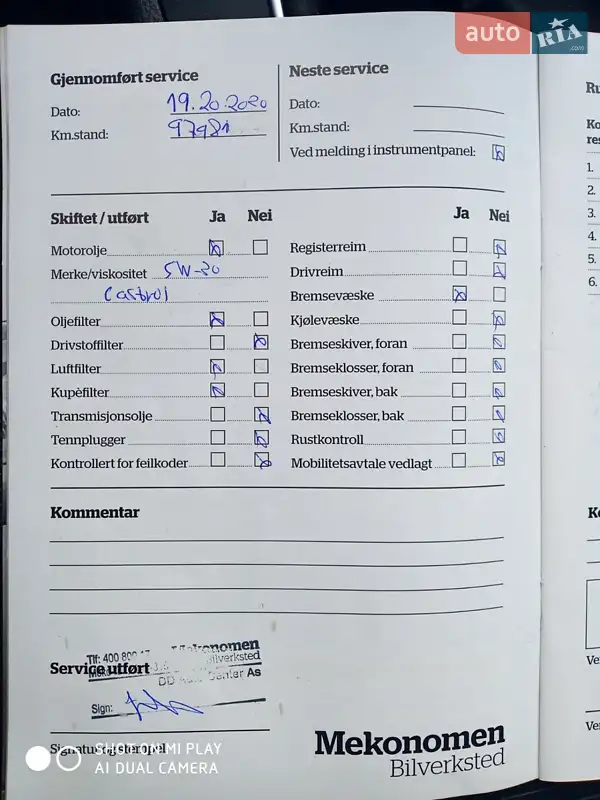 auto RIA .com
Gjennomført service
Dato: 19.20.2020
Km.stand: 97981
Neste service
Dato:
Km.stand:
Ved melding i instrumentpanel:
Skiftet / utført Ja Nei
Motorolje
Merke/viskositet 5W-20
Castrol
Oljefilter
Drivstoffilter
Luftfilter
Kupèfilter
Transmisjonsolje
Tennplugger
Kontrollert for feilkoder
Ja Nei
Registerreim
Drivreim
Bremsevæske
Kjølevæske
Bremseskiver, foran
Bremseklosser, foran
Bremseskiver, bak
Bremseklosser, bak
Rustkontroll
Mobilitetsavtale vedlagt
Kommentar
Tlf: 400 80
Mekonomen
Bilverksted
Service utført
As
Sign:
SHOT ON MI PLAY
AI DUAL CAMERA
Mekonomen
Bilverksted
1.
2.
3.
4.
5.
6.